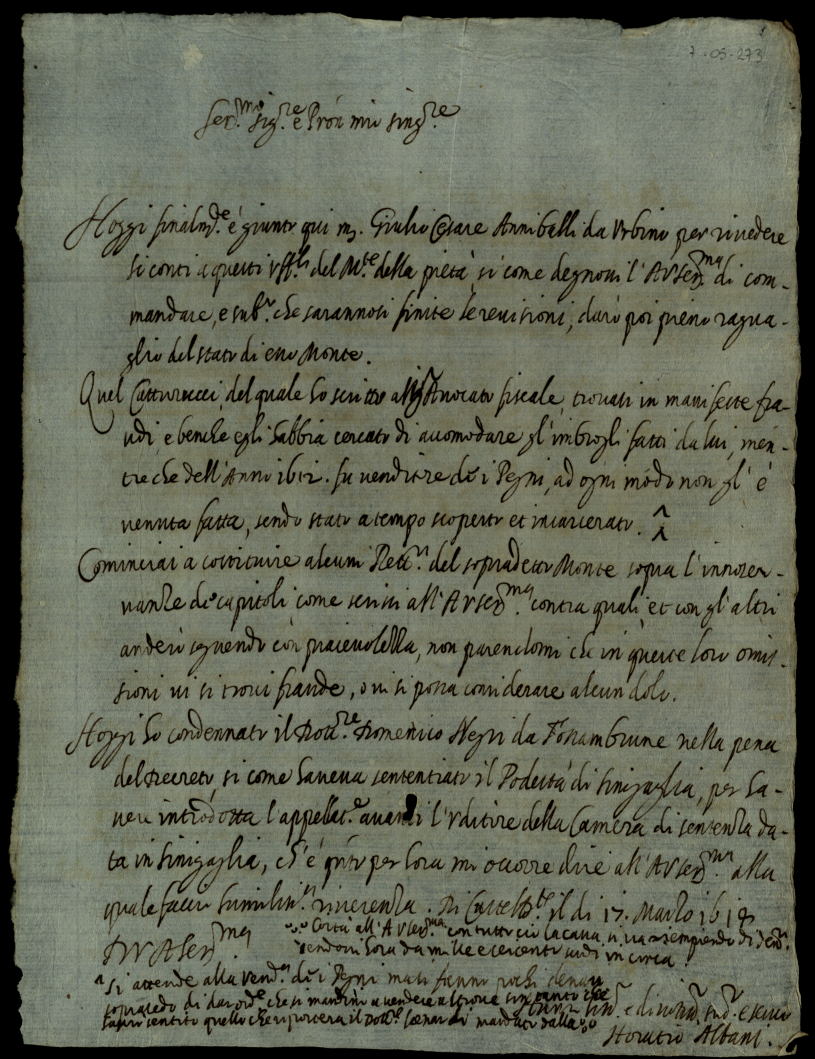 7-05-273
Ser.mo sig.re e Pròn mio sing.re
Hoggi finalm.te è giunto qui m. Giulio Cesare Anniballi da Urbino per rivedere
li conti a questi uff.li del M.te della pietà, si come degnossi l'A V Ser.ma di com-
mandare, e sub.o che sarannosi finite le revisioni, darò poi pieno ragua-
glio del stato di esso Monte.
Quel Cattorucci, del quale ho scritto all' Avvocato fiscale, trovasi in manifeste fra-
udi, e benche egli habbia cercato di accomodare gl'imbrogli fatti da lui, men-
tre che dell'Anno 1612. fu venditore de i Pegni, ad ogni modo non gl'è
venuta fatta, sendo stato a tempo scoperto et incarcerato. ^
Cominciai a costituire alcuni Rett.ri del sopradetto Monte sopra l'inosser-
vanza de capitoli come scrissi all'A V Ser.ma contra quali et con gl'altri
anderò seguendo con piacevolezza, non parendomi che in queste loro omis-
sioni vi si trovi fraude, o vi si possa considerare alcun dolo.
Hoggi ho condennato il Dott.re Domenico Negri da Fossambrune nella pena
del Decreto, si come haveva sententiato il Podestà di Sinigaglia, per ha-
vere introdotta l'appellat.e avanti l'Uditore della Camera di sentenza da-
ta in Sinigaglia, ch'è q.nto per hora mi occorre dire all'A V Ser.ma alla
quale faccio humiliss.a riverenza. Di Castel il di 17. Marzo 1618
D V A Ser.ma
Certa all'A V Ser.ma con tutto ciò la cassa si va riempiendo di den.ri
sendovi hora da mille e ducento scudi in circa.
^ Si attende alla vend.a de i Pegni mà si fanno pochi denari
sopracedo di dar ord.e che si mandino a vendere altrove sin tanto che
havrò sentito quello che riporterà il Dott.re Leonardi mandato dalla
Horatio Albani.